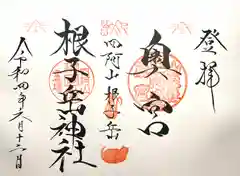 登拝
奥宮
四阿山根子岳
根子岳神社
令和四年六月十二日